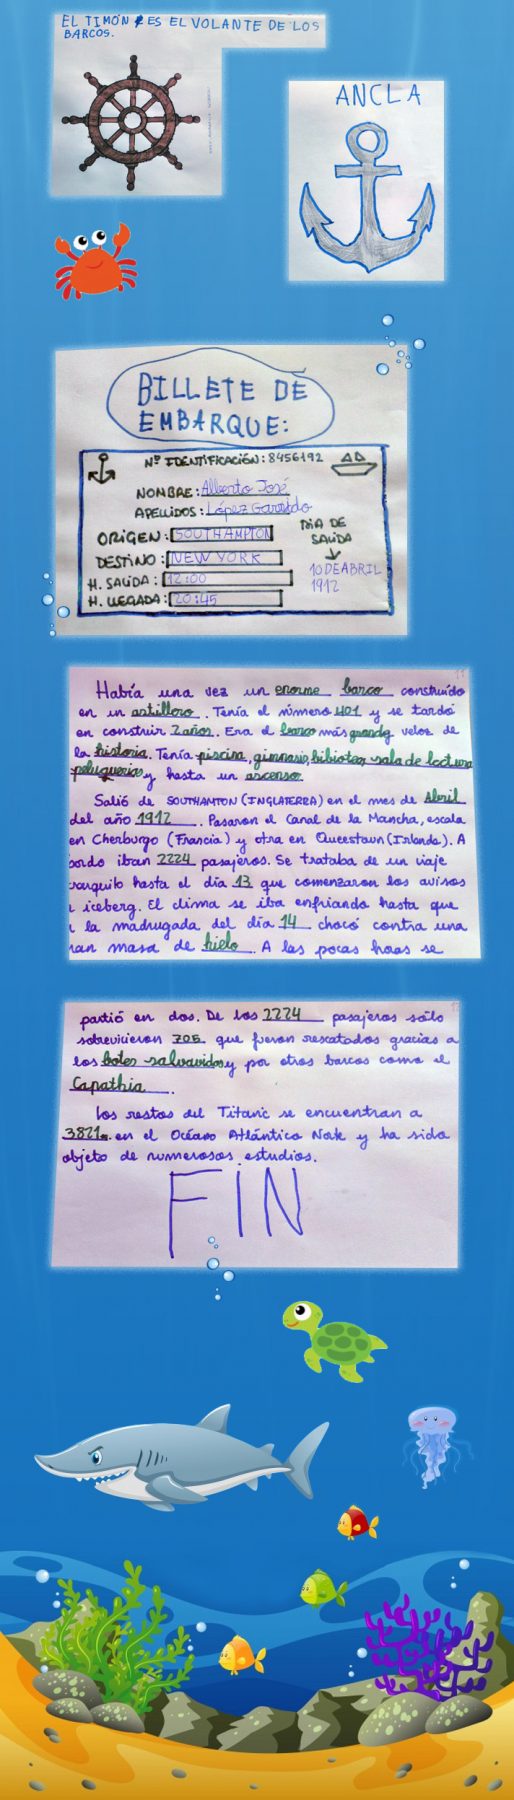 EL TIMÓN ES EL VOLANTE DE LOS
BARCOS.
ANCLA
BILLETE DE
EMBARQUE:
Nº IDENTIFICACIÓN: 8456192
NOMBRE: Alberto José
APELLIDOS: López Garrido
ORIGEN: SOUTHAMPTON
DESTINO: NEW YORK
H. SALIDA: 12:00
H. LLEGADA: 20:45
DIA DE
SALIDA
↓
10 DE ABRIL
1912
11
Había una vez un enorme barco construido
en un astillero. Tenía el número 401 y se tardó
en construir 2 años. Era el barco más grande y veloz de
la historia. Tenía piscina, gimnasio, biblioteca, sala de lectura
peluquerias y hasta un ascensor.
Salió de SOUTHAMTON (INGLATERRA) en el mes de Abril
del año 1912. Pasaron el Canal de la Mancha, escala
en Cherburgo (Francia) y otra en Queestown (Irlanda). A
bordo iban 2224 pasajeros. Se trataba de un viaje
tranquilo hasta el día 13 que comenzaron los avisos
iceberg. El clima se iba enfriando hasta que
la madrugada del día 14 chocó contra una
ran masa de hielo. A las pocas horas se
partió en dos. De los 2224 pasajeros sólo
sobrevivieron 705 que fueron rescatados gracias a
los botes salvavidas y por otros barcos como el
Capathia.
Los restos del Titanic se encuentran a
3821m en el Océano Atlántico Norte y ha sido
objeto de numerosos estudios.
FIN